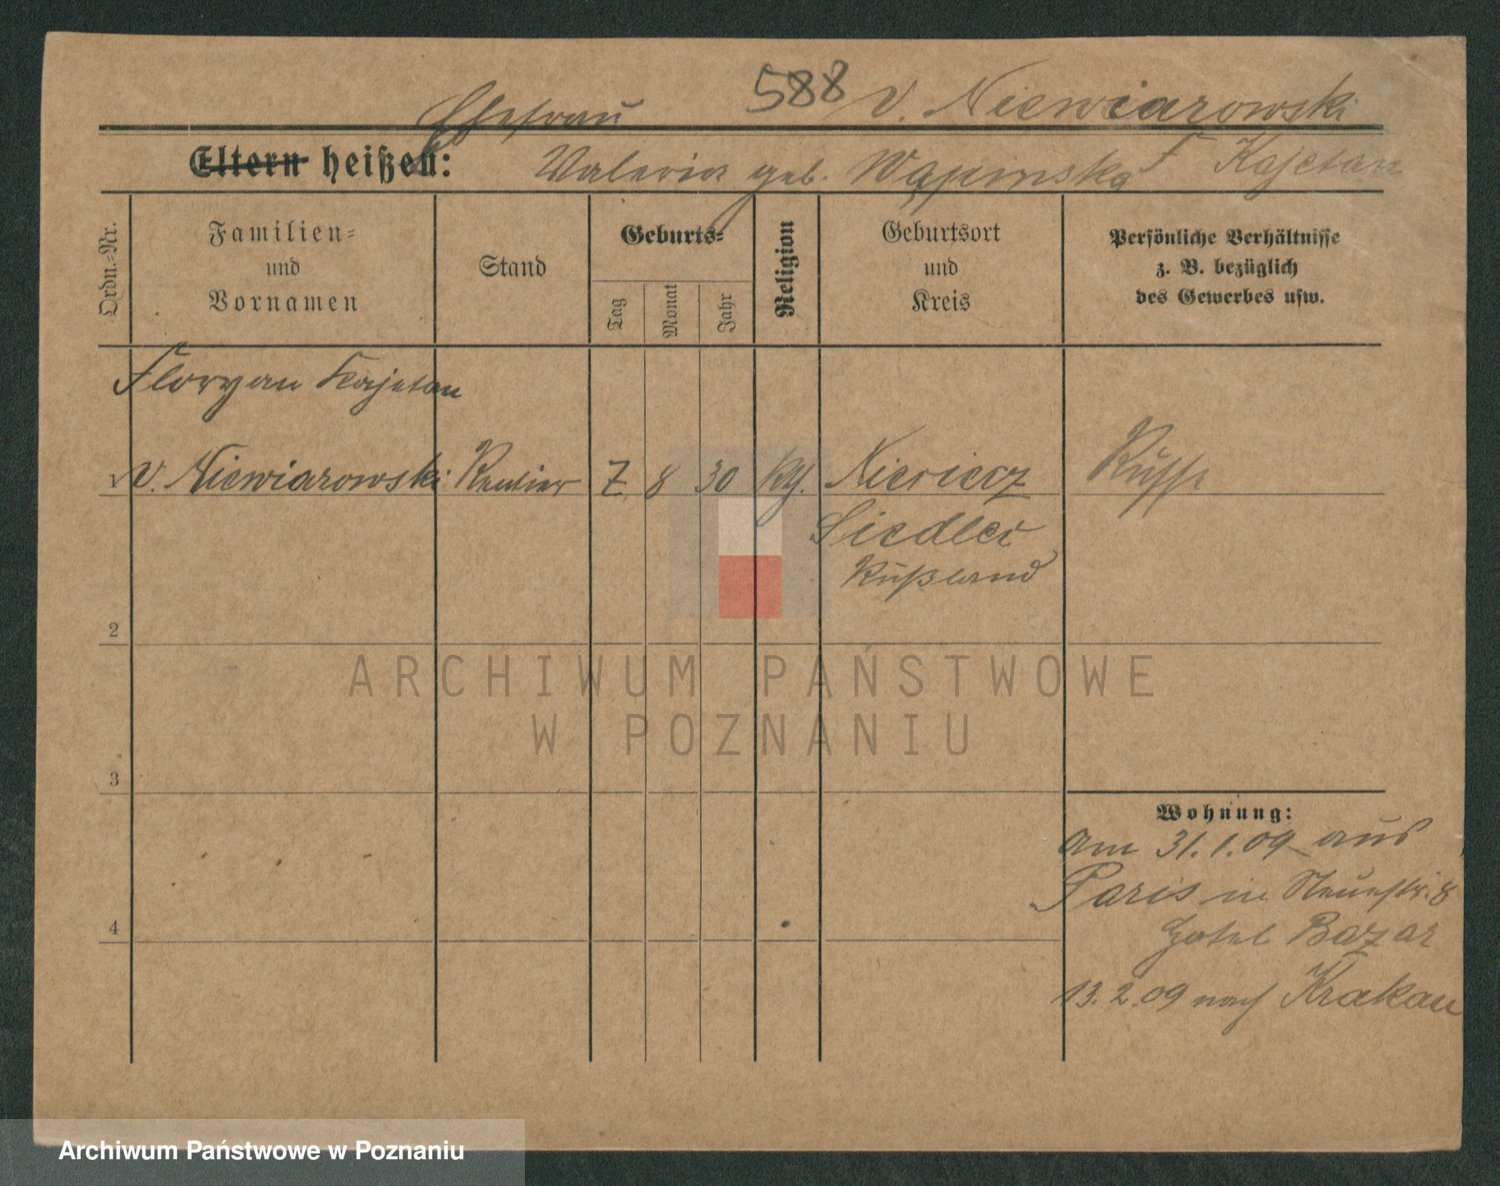 588 v. Niewiarowski
Ehefrau
Eltern heißen: Valeria geb. Wąpinska F Kajetan
Ordn.-Nr.
Familien-
und
Vornamen
Stand
Geburts-
Tag
Monat
Jahr
Religion
Geburtsort
und
Kreis
Persönliche Verhältnisse
z. B. bezüglich
des Gewerbes usw.
Floryan Kajetan
1 v. Niewiarowski Rentier 7 8 30 kth. Russe
Siedlec
Rußland
2
3
4
Wohnung:
am 31.1.09 aus
Paris in Neuestr. 8
Hotel Bazar
13.2.09 nach Krakau
ARCHIWUM PAŃSTWOWE
W POZNANIU
Archiwum Państwowe w Poznaniu